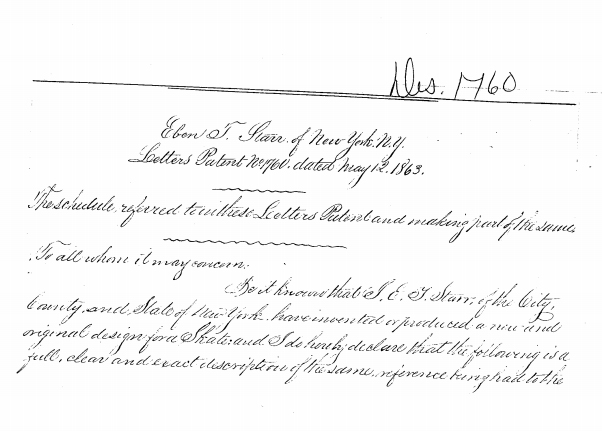 Des. 1760
Eben T. Starr, of New York. N.Y.
Letters Patent No 1760. dated May 12. 1863.
The schedule referred to in these Letters Patent and making part of the same.
To all whom it may concern:
Be it known that I. E. T. Starr, of the City,
County and State of New York have invented or produced a new and
original design for a Skate: and I do hereby declare that the following is a
full, clear and exact description of the same, reference being had to the